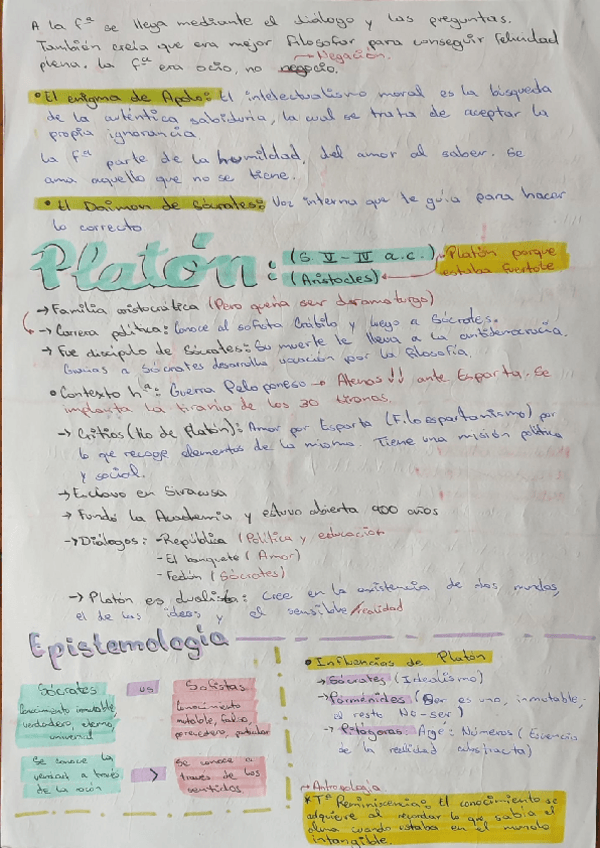 A la fª se llega mediante el diálogo y las preguntas.
También creía que era mejor filosofar para conseguir felicidad
plena. La fª era ocio, no negocio.
→ Negación.
• El enigma de Apolo: El intelectualismo moral es la búsqueda
de la auténtica sabiduría, la cual se trata de aceptar la
propia ignorancia
La Fª parte de la humildad, del amor al saber. Se
ama aquello que no se tiene.
• El Daimon de Sócrates: Voz interna que le guía para hacer
lo correcto
Platón: (S V-IV a.c.)
(Aristocles)
Platón porque
estaba fuertote
→ Familia aristocrática (Pero quería ser dramaturgo)
→ Carrera política: Conoce al sofista Crátilo y luego a Sócrates.
→ Fue discípulo de Sócrates: Su muerte le lleva a la antidemocracia.
Gracias a Sócrates desarrolla vocación por la filosofía.
• Contexto hª: Guerra Peloponeso → Atenas ↓↓ ante Esparta. Se
implanta la tiranía de los 30 tiranos.
→ Critias (tío de Platón): Amor por Esparta (Filoespartanismo) por
lo que recoge elementos de la misma. Tiene una misión política
y social.
→ Esclavo en Siracusa
→ Fundó la Academia y estuvo abierta 900 años
→ Diálogos: - República (Política y educación
- El banquete (Amor)
- Fedón (Sócrates)
→ Platón es dualista: Cree en la existencia de dos mundos,
el de las ideas y el sensible/realidad
Epistemología
Sócrates vs Sofistas
Conocimiento inmutable,
verdadero, eterno
universal
Conocimiento
mutable, falso,
perecedero, particular
Se conoce la
verdad a través
de la razón
>
Se conoce a
través de los
sentidos
• Influencias de Platón
→ Sócrates (Idealismo)
→ Parménides (Ser es uno, inmutable,
el resto No-ser)
→ Pitágoras: Arjé: Números (Esencia
de la realidad abstracta)
→ Antropología
* Tª Reminiscencia: El conocimiento se
adquiere al recordar lo que sabía el
alma cuando estaba en el mundo
intangible.